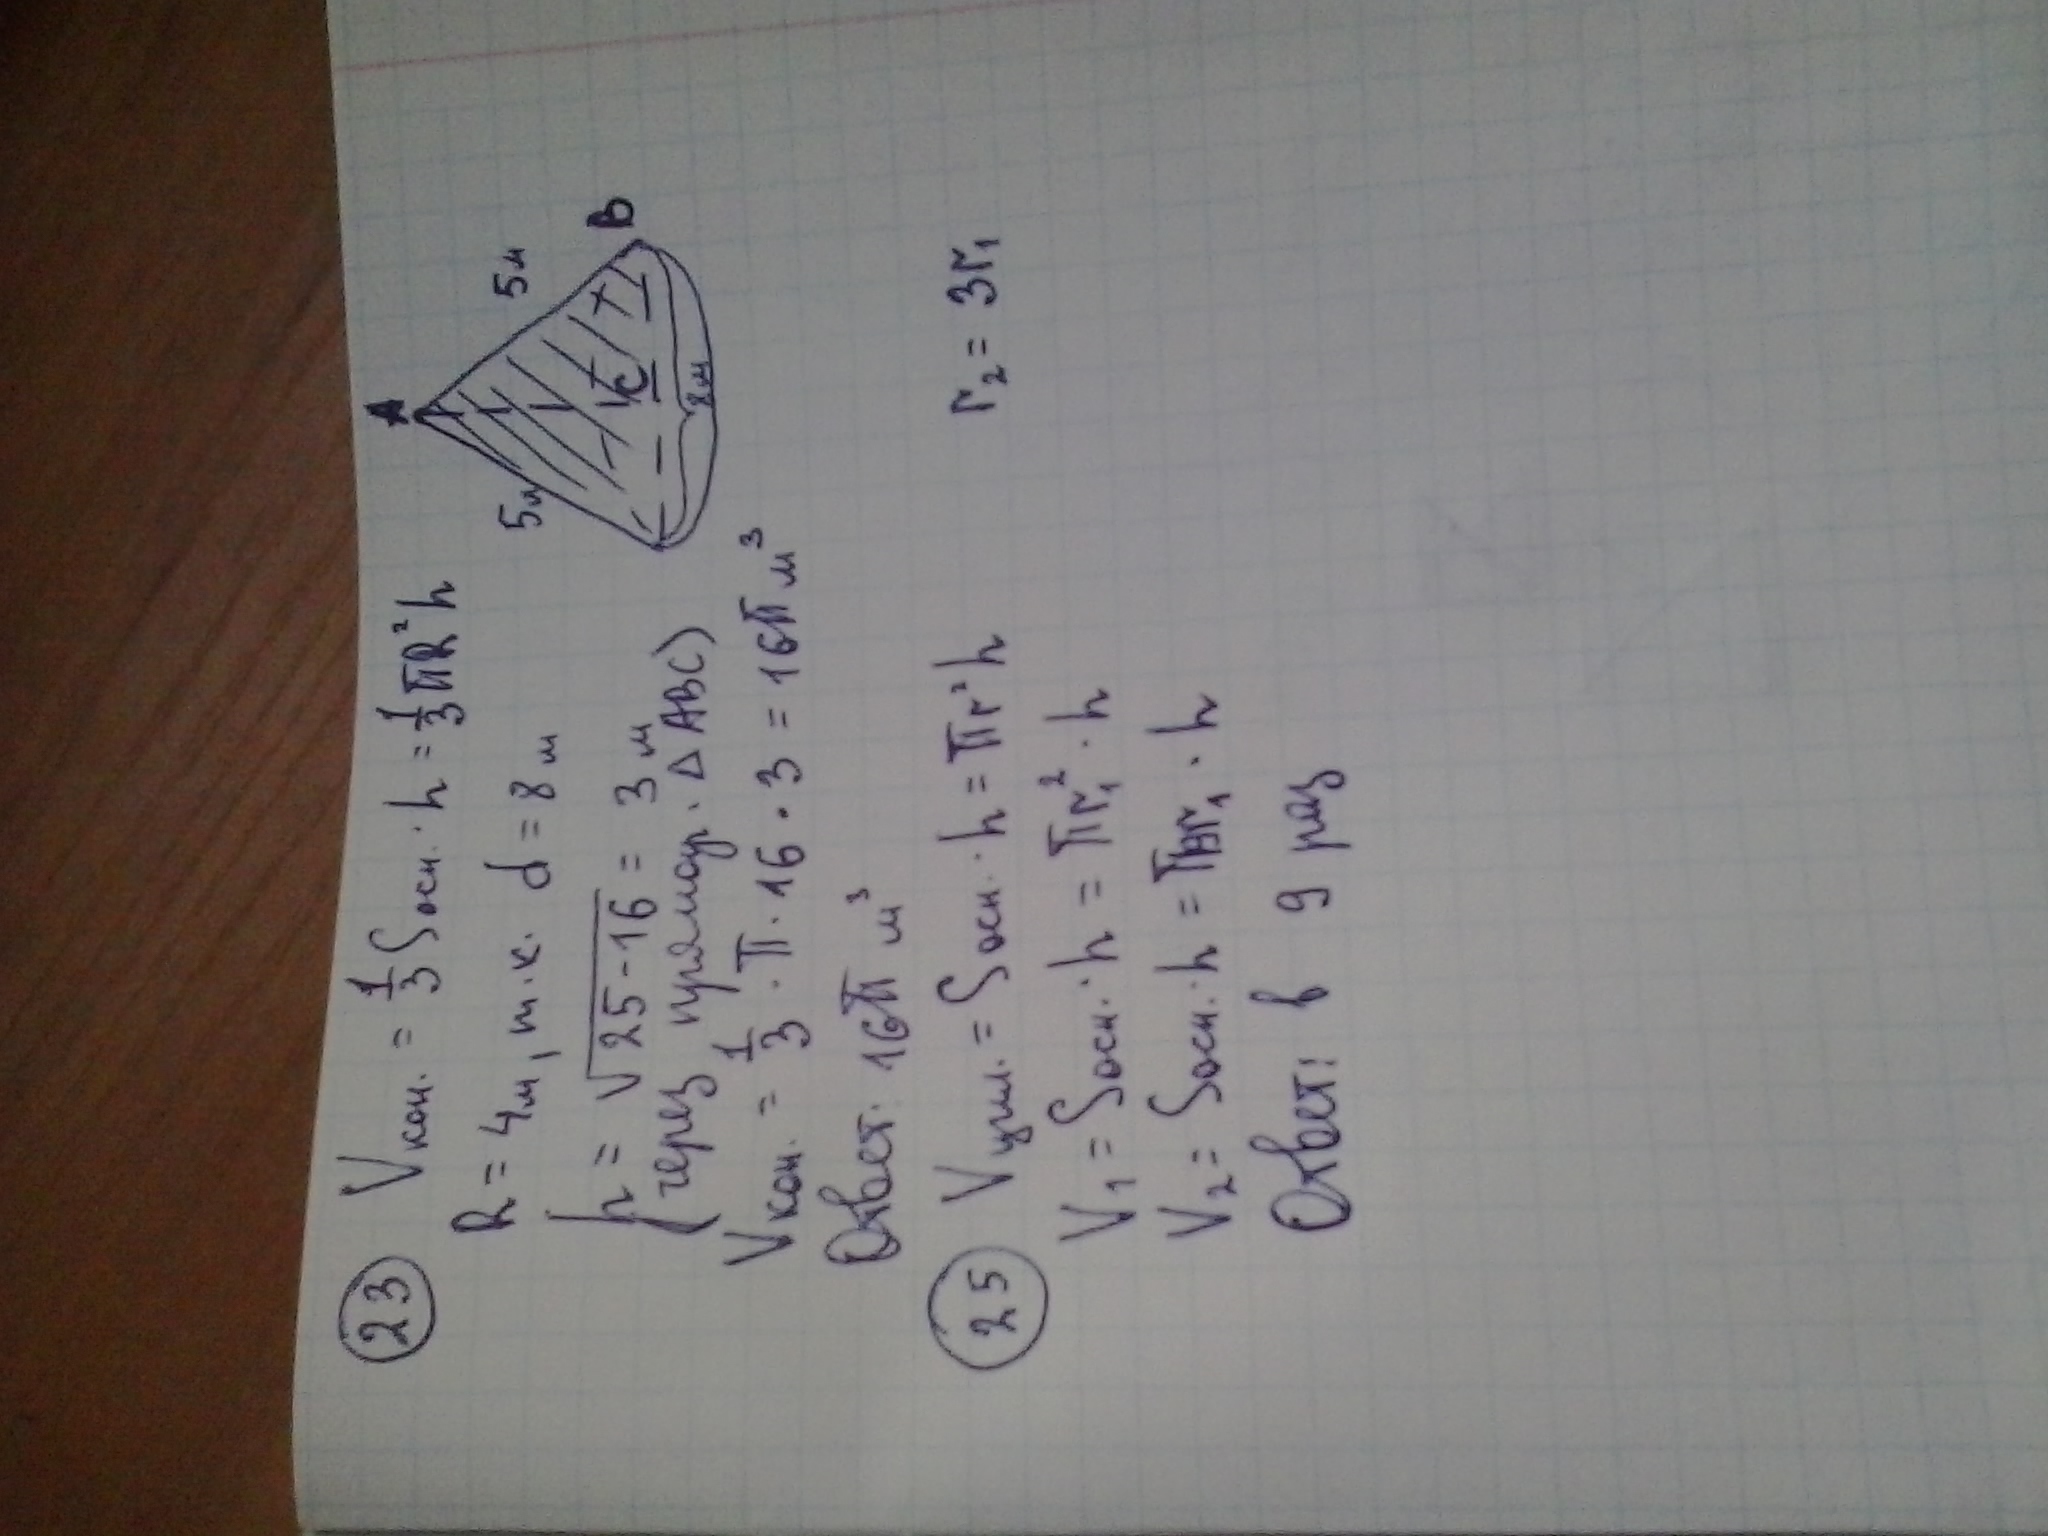 23 Vкон. = 1/3 Sосн. · h = 1/3 πR²h
R = 4м, т.к. d = 8 м
h = √25-16 = 3 м
(через прямоуг. Δ ABC)
Vкон. = 1/3 · π · 16 · 3 = 16π м³
Ответ. 16π м³
A
5м
5м
B
C
8м
25 Vцил. = Sосн. · h = πr²h
r₂ = 3r₁
V₁ = Sосн. · h = πr₁² · h
V₂ = Sосн. · h = · h
Ответ: в 9 раз